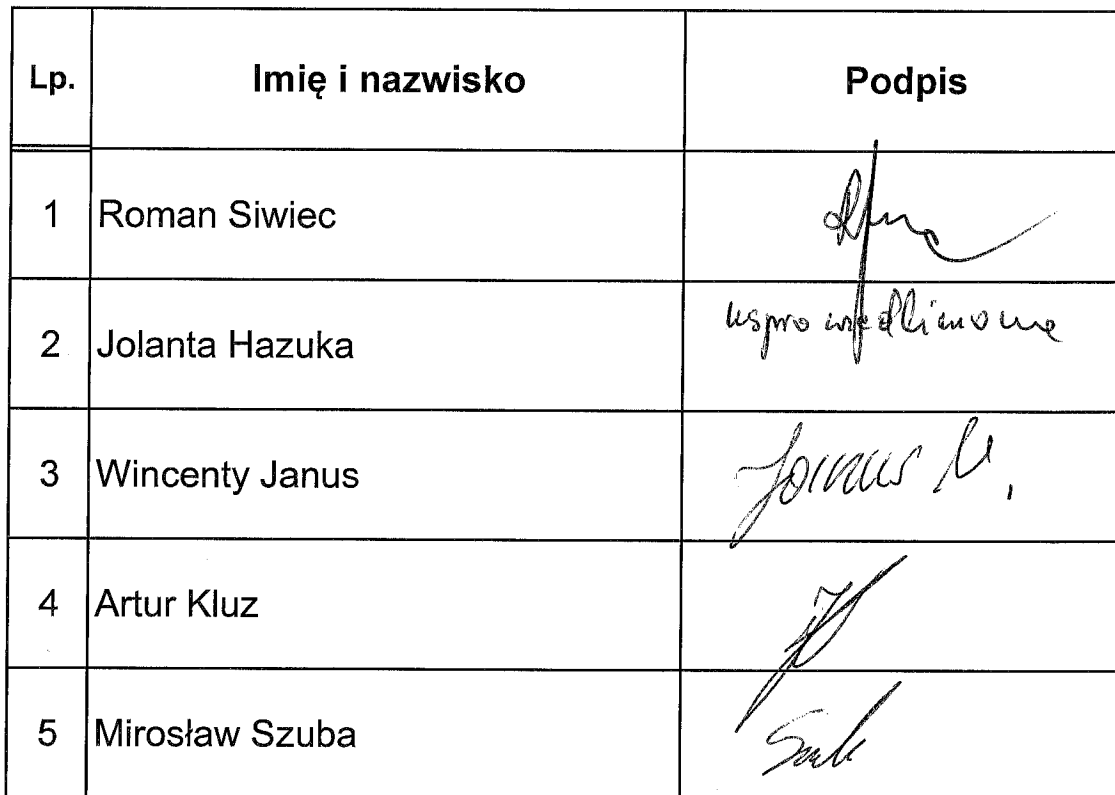 Lp. Imię i nazwisko Podpis
1 Roman Siwiec
2 Jolanta Hazuka usprawiedliwiona
3 Wincenty Janus Janus W.
4 Artur Kluz
5 Mirosław Szuba